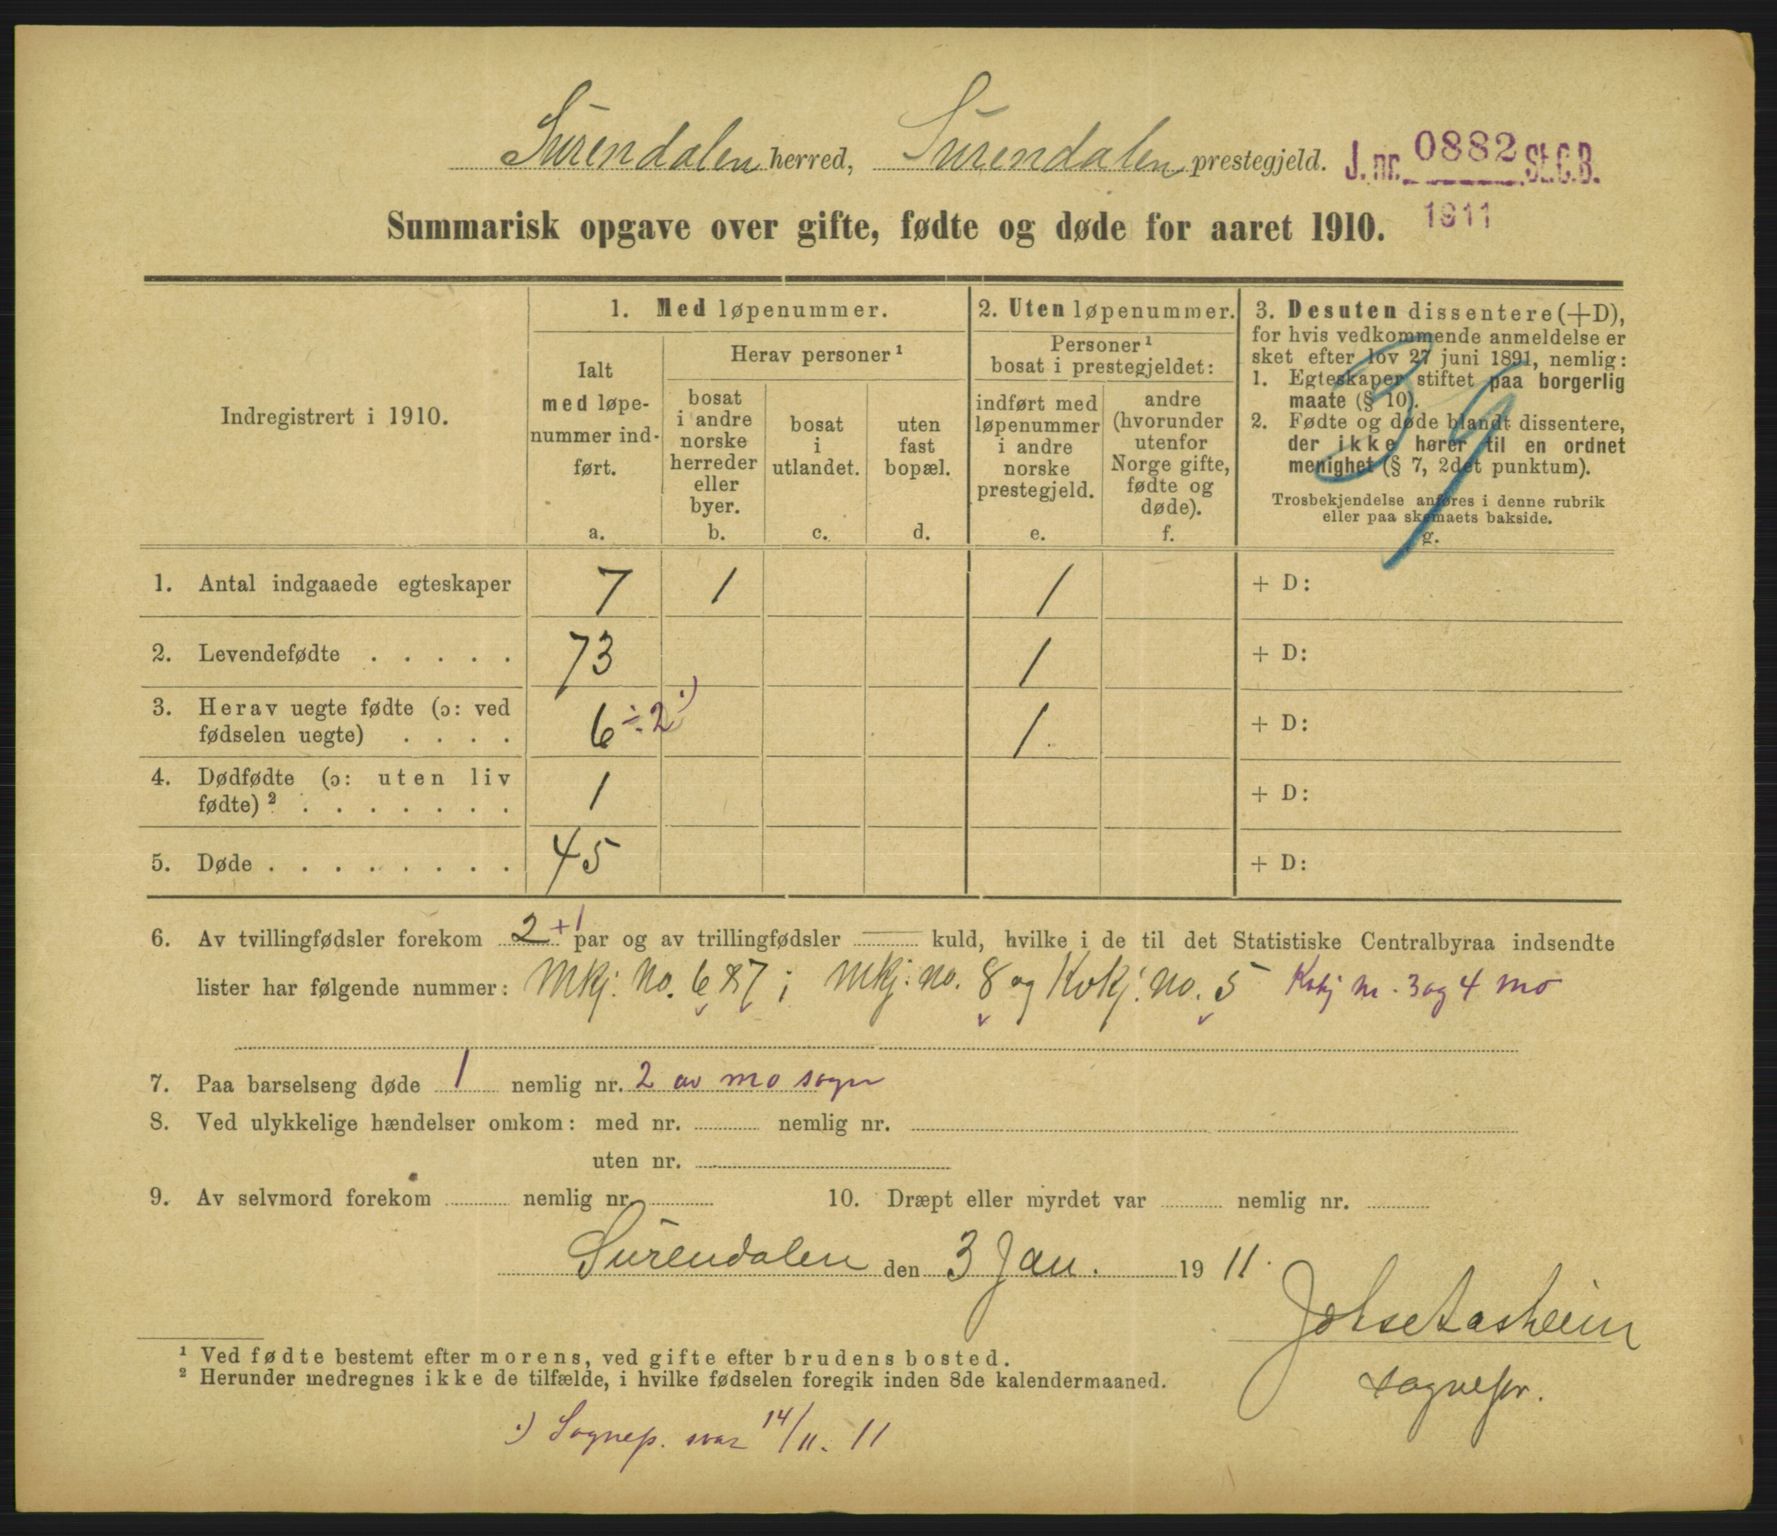 Surendalen herred, Surendalen prestegjeld. J. nr. 0882 St.C.B.
1911
Summarisk opgave over gifte, fødte og døde for aaret 1910.
39
Indregistrert i 1910.
1. Med løpenummer.
Ialt
med løpe-
nummer ind-
ført.
a.
Herav personer ¹
bosat
i andre
norske
herreder
eller
byer.
b.
bosat
i
utlandet.
c.
uten
fast
bopæl.
d.
2. Uten løpenummer.
Personer ¹
bosat i prestegjeldet:
indført med
løpenummer
i andre
norske
prestegjeld.
e.
andre
(hvorunder
utenfor
Norge gifte,
fødte og
døde).
f.
3. Desuten dissentere (+D),
for hvis vedkommende anmeldelse er
sket efter lov 27 juni 1891, nemlig:
1. Egteskaper stiftet paa borgerlig
maate (§ 10).
2. Fødte og døde blandt dissentere,
der ikke hører til en ordnet
menighet (§ 7, 2det punktum).
Trosbekjendelse anføres i denne rubrik
eller paa skemaets bakside.
g.
1. Antal indgaaede egteskaper 7 1 1 + D:
2. Levendefødte . . . . . 73 1 + D:
3. Herav uegte fødte (ɔ: ved
fødselen uegte) . . . . 6 ÷ 2 ·) 1 + D:
4. Dødfødte (ɔ: uten liv
fødte) ² . . . . . . . 1 + D:
5. Døde . . . . . . . . 45 + D:
6. Av tvillingfødsler forekom 2 +1 par og av trillingfødsler — kuld, hvilke i de til det Statistiske Centralbyraa indsendte
lister har følgende nummer: Mkj. no. 6 & 7; Mkj. no. 8 og Kvkj. no. 5 Kvkj nr. 3 og 4 mo
7. Paa barselseng døde 1 nemlig nr. 2 av mo sogn
8. Ved ulykkelige hændelser omkom: med nr. nemlig nr.
uten nr.
9. Av selvmord forekom nemlig nr. 10. Dræpt eller myrdet var nemlig nr.
Surendalen den 3 Jan. 1911.
sognepr.
¹ Ved fødte bestemt efter morens, ved gifte efter brudens bosted.
² Herunder medregnes ikke de tilfælde, i hvilke fødselen foregik inden 8de kalendermaaned.
·) Sognep. svar 14/11. 11